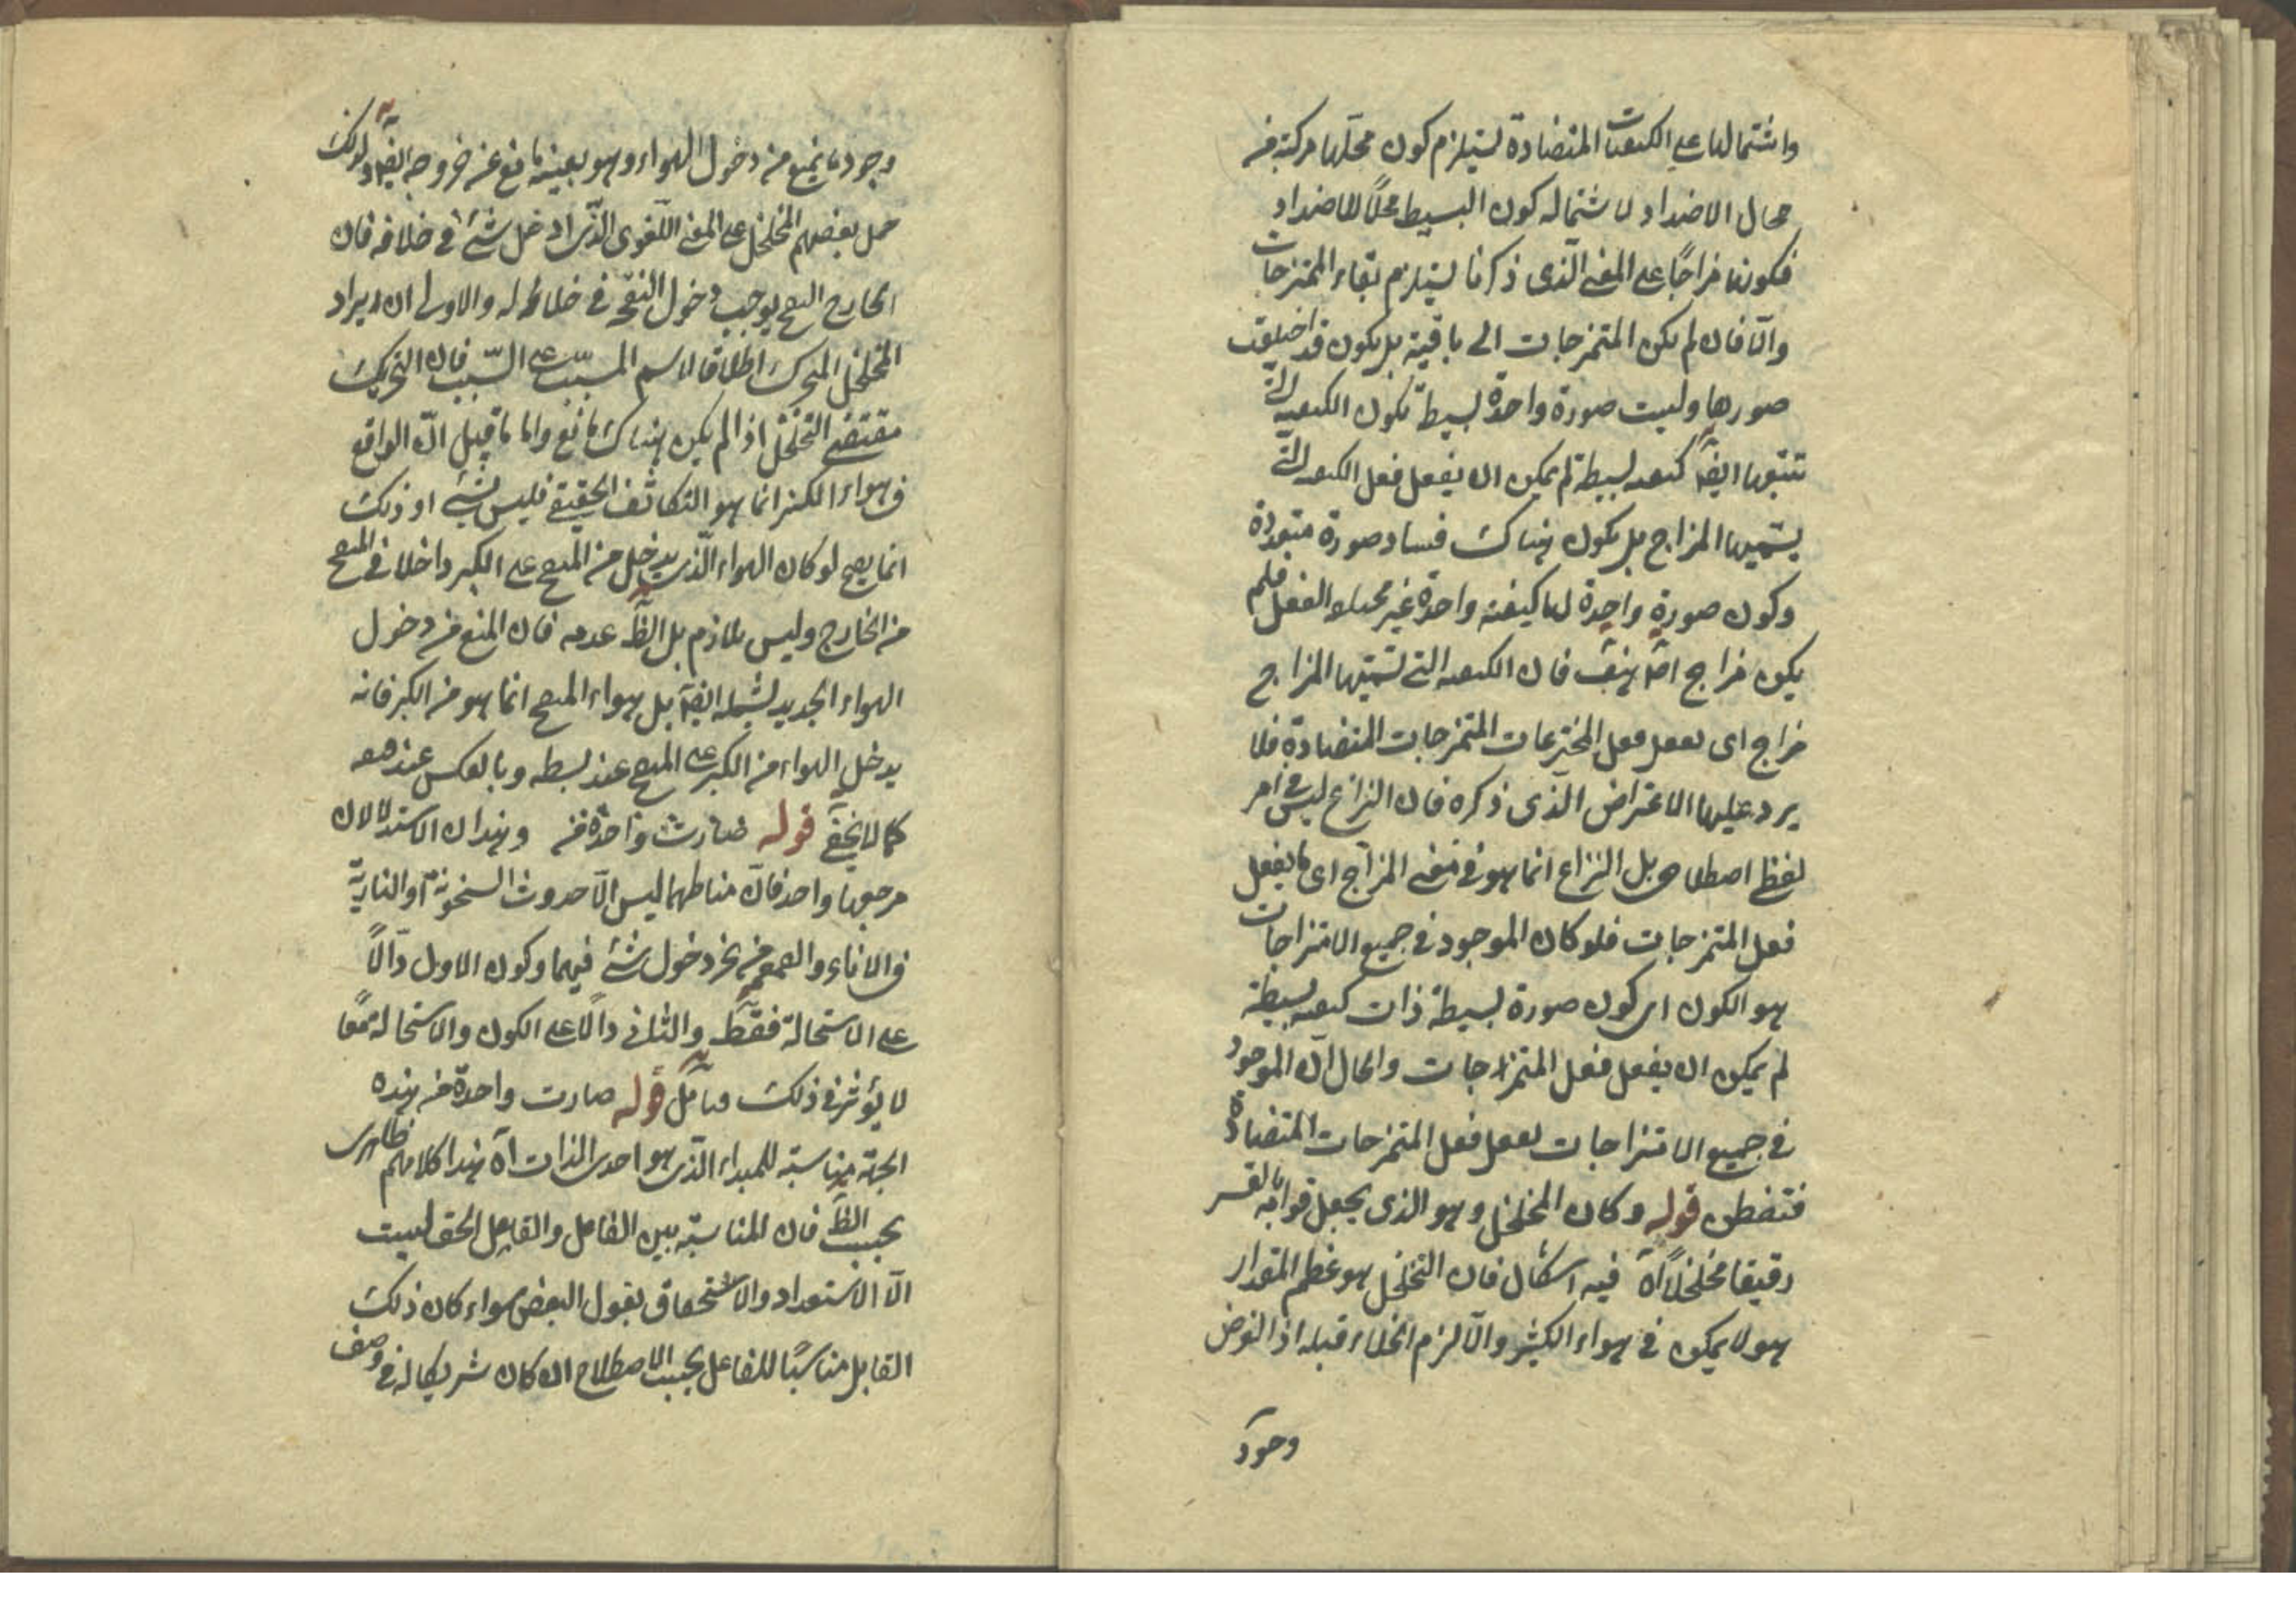 واشتمالها على الكيفيات المتضادة يستلزم كون محلها مركبة من
محال الاضداد لاشتماله كون البسيط محلًا للاضداد
فكونها مزاجًا على المعنى الذى ذكرنا يستلزم بقاء الممتزجات
والّا فان لم يكن الممتزجات الى باقية بل يكون قد
صورها وليست صورة واحدة بسيطة تكون الكيفية التى
تتبعها ايضًا كيفية بسيطة لم يمكن ان يفعل فعل الكيفية التى
يسميها المزاج بل يكون هناك فساد صورة متعددة
وكون صورة واحدة لها كيفية واحدة غير الفعل فلم
يكن مزاج هف فان الكيفية التى تسميها المزاج
مزاج اى يفعل فعل الممتزجات المتضادة فلا
يرد عليها الاعتراض الذى ذكره فان النزاع ليس فى امر
لفظ اصطلاحى بل النزاع انما هو فى معنى المزاج اى ما يفعل
فعل الممتزجات فلو كان الموجود فى جميع الامتزاجات
هو الكون اى كون صورة بسيطة ذات كيفية بسيطة
لم يمكن ان يفعل فعل الممتزاجات والحال انّ الموجود
فى جميع الامتزاجات يفعل فعل الممتزجات المتضادة
فتفطن قوله وكان المخلخل وهو الذى يجعل قوامه بالقسر
رقيقا مخلخلًا آه فيه اشكال فان التخلخل هو عظم المقدار
هو لا يمكن فى هواء الكير والّا لزم الخلاء قبله اذ الفرض
وجود
وجود ما يمنع من دخول الهواء وهو بعينه مانع عن خروجه ايضًا ولذلك
حمل بعضهم المخلخل على المعنى اللغوى الذى ادخل شئ فى خلافه فان
الخارج يوجب دخول النفخ فى خلاله والاولى ان يراد
المخلخل المحرك اطلاقا لاسم المسبب على السبب فان التحريك
مقتضى التخلخل اذا لم يكن هناك مانع واما ما قيل انّ الواقع
فى هواء الكير انما هو التكاثف الحقيقى فليس بشئ اذ ذلك
انما يصح لو كان الهواء الذى يدخل من المنفخ على الكير داخلا فى المنفخ
من الخارج وليس بلازم بل الظ عدمه فان المنع من دخول
الهواء الجديد يشمله ايضًا بل هواء المنفخ انما هو من الكير فانه
يدخل الهواء من الكير على المنفخ عند بسطه وبالعكس عند
كما لا يخفى قوله صارت واحدة من وهذان الاستدلالان
مرجعها واحد فان مناطهما ليس الّا حدوث السخونة او النارية
فى الاناء والقمقم من غير دخول شئ فيهما وكون الاول دالًا
على الاستحالة فقط والثانى دالًا على الكون والاستحالة معًا
لا يؤثر فى ذلك فتأمل قوله صارت واحدة من هذه
الجهة مناسبته للمبداء الذى هو احدى الذات آه هذا كلامهم ظاهرى
بحسب الظ فان المناسبة بين الفاعل والقابل الحق ليست
الّا الاستعداد والاستحقاق بقول البعض سواء كان ذلك
القابل مناسبًا للفاعل بحسب الاصطلاح ان كان شريكا له فى وصف